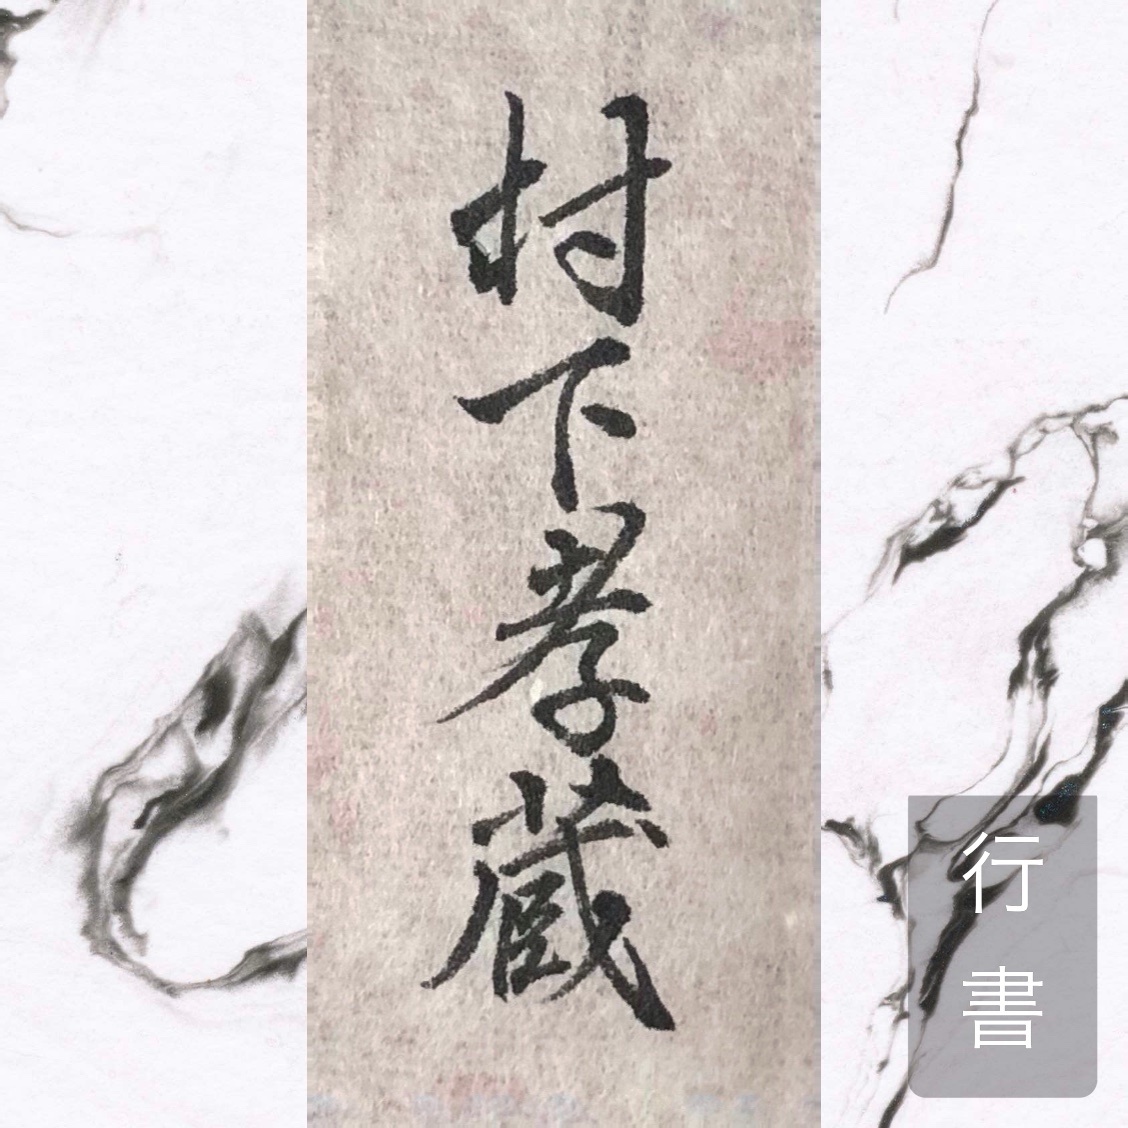 村下孝蔵
行書